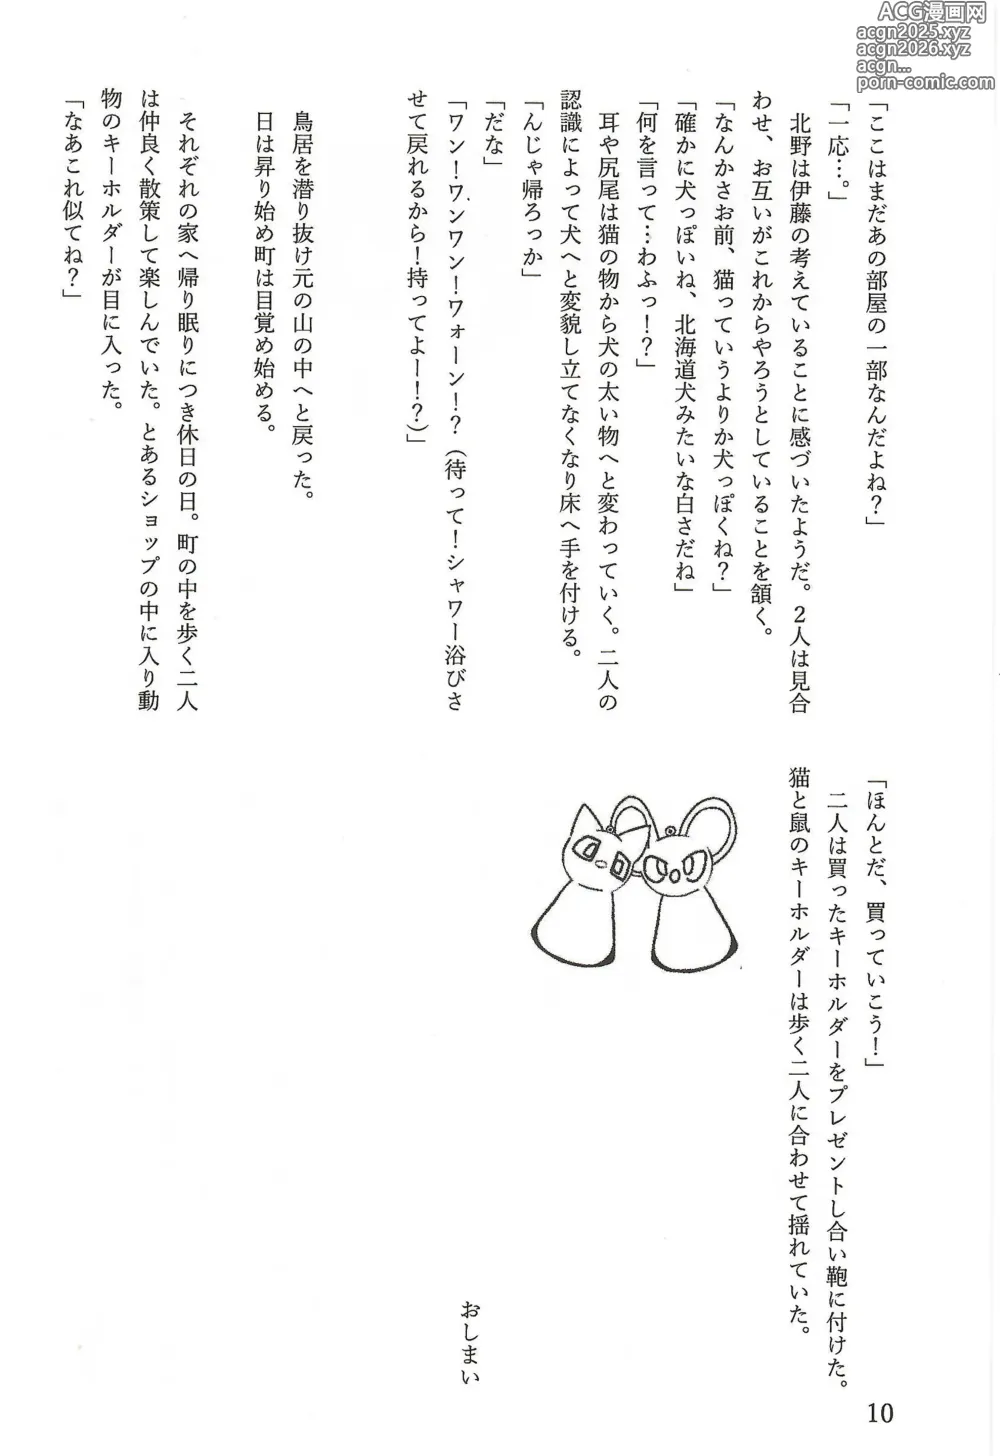 ACG漫画网
acgn2025.xyz
acgn2026.xyz
acgn...
porn-comic.com
「ここはまだあの部屋の一部なんだよね？」
「一応…。」
北野は伊藤の考えていることに感づいたようだ。２人は見合
わせ、お互いがこれからやろうとしていることを頷く。
「なんかさお前、猫っていうよりか犬っぽくね？」
「確かに犬っぽいね、北海道犬みたいな白さだね」
「何を言って…わふっ！？」
耳や尻尾は猫の物から犬の太い物へと変わっていく。二人の
認識によって犬へと変貌し立てなくなり床へ手を付ける。
「んじゃ帰ろっか」
「だな」
「ワン！ワンワン！ワォーン！？（待って！シャワー浴びさ
せて戻れるから！持ってよー！？）」
鳥居を潜り抜け元の山の中へと戻った。
日は昇り始め町は目覚め始める。
それぞれの家へ帰り眠りにつき休日の日。町の中を歩く二人
は仲良く散策して楽しんでいた。とあるショップの中に入り動
物のキーホルダーが目に入った。
「なあこれ似てね？」
「ほんとだ、買っていこう！」
二人は買ったキーホルダーをプレゼントし合い鞄に付けた。
猫と鼠のキーホルダーは歩く二人に合わせて揺れていた。
おしまい
10